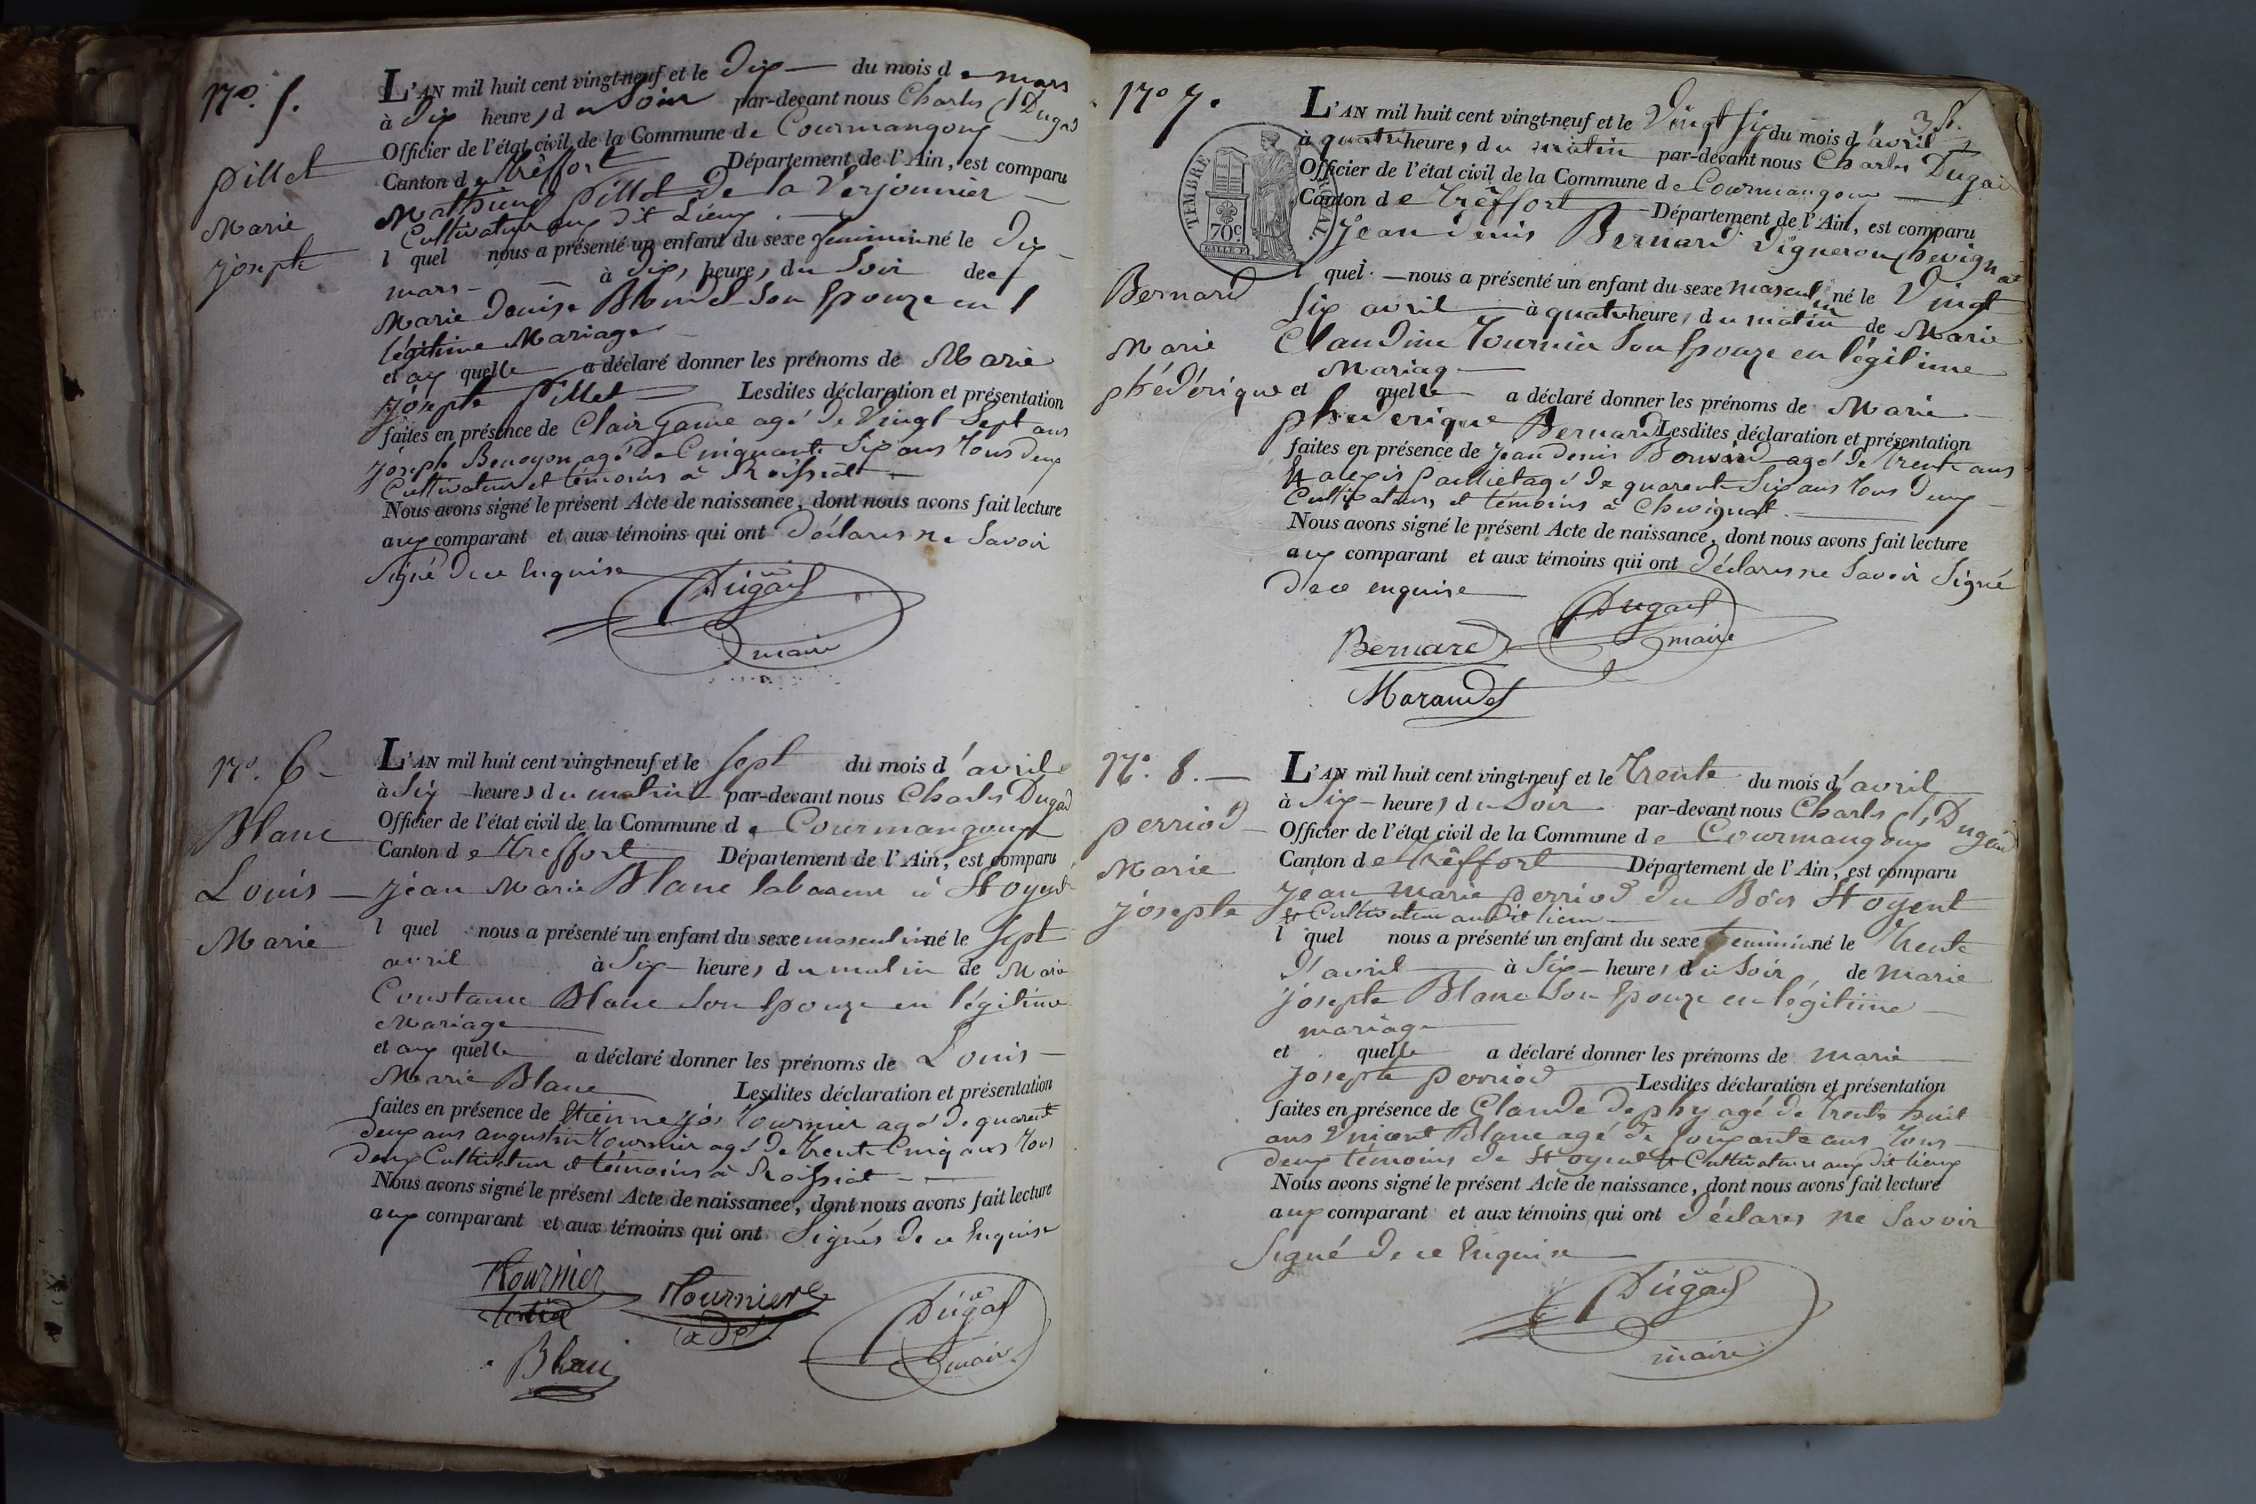 N.° 5.
pillet
Marie
josepte
L'AN mil huit cent vingt-neuf et le dix du mois de mars
à dix heures du Soir par-devant nous Charles Dugad
Officier de l'état civil de la Commune de Courmangoux
Canton de Trêffort Département de l'Ain, est comparu
Mathieu pillet de la Verjonnier
Cultivateur aux dit Lieux
l quel nous a présenté un enfant du sexe feminin né le dix
mars à dix heures du Soir de
Marie Denise Blondet Son Epouze en
légitime Mariage
et aux quelle a déclaré donner les prénoms de Marie
josepte pillet Lesdites déclaration et présentation
faites en présence de Clair Game agé de Vingt Sept ans
joseph Benoyon agé de Cinquante Six ans tous deux
Cultivateur et témoins à Roissiat
Nous avons signé le présent Acte de naissance, dont nous avons fait lecture
aux comparant et aux témoins qui ont déclarés ne Savoir
Signé de ce Enquise
Dugad
maire
N.° 6
Blanc
Louis
Marie
L'AN mil huit cent vingt-neuf et le Sept du mois d'avril
à Six heures du matin par-devant nous Charles Dugad
Officier de l'état civil de la Commune de Courmangoux
Canton de Treffort Département de l'Ain, est comparu
jean Marie Blanc laboureur à St oyent
l quel nous a présenté un enfant du sexe masculin né le Sept
avril à Six heures du matin de Marie
Constance Blanc Son Epouze en légitime
Mariage
et aux quelle a déclaré donner les prénoms de Louis
Marie Blanc Lesdites déclaration et présentation
faites en présence de Etienne jos Tournier agé de quarente
deux ans augustin Tournier agé de trente Cinq ans tous
deux Cultivateur et témoins à Roissiat
Nous avons signé le présent Acte de naissance, dont nous avons fait lecture
aux comparant et aux témoins qui ont Signés de ce Enquise
Tournier Tournier
Dugad
maire
Blanc
N° 7.
38.
TIMBRE ROYAL.
70c
Bernard
Marie
phédérique
L'AN mil huit cent vingt-neuf et le Vingt Six du mois d'avril
à quatre heures du matin par-devant nous Charles Dugad
Officier de l'état civil de la Commune de Courmangoux
Canton de Trêffort Département de l'Ain, est comparu
Jean denis Bernard Vigneron Chevignat
l quel nous a présenté un enfant du sexe masculin né le Vingt
Six avril à quatre heures du matin de Marie
Claudine Tournier Son Epouze en légitime
Mariag
et quelle a déclaré donner les prénoms de Marie
phederique Bernard Lesdites déclaration et présentation
faites en présence de Jean denis Bernard agé de trente ans
Et alexis paulliet agé de quarente Six ans tous deux
Cultivateurs et témoins à Chevignat
Nous avons signé le présent Acte de naissance, dont nous avons fait lecture
aux comparant et aux témoins qui ont déclarés ne Savoir Signé
de ce enquise
Dugad
maire
Bernard
Morandet
N.° 8.
perriod
Marie
josepte
L'AN mil huit cent vingt-neuf et le trente du mois d'avril
à Six heures du Soir par-devant nous Charles Dugad
Officier de l'état civil de la Commune de Courmangoux
Canton de Trêffort Département de l'Ain, est comparu
jean marie perriod du Bois St oyent
et Cultivateur audit lieux
l quel nous a présenté un enfant du sexe feminin né le trente
d'avril à Six heures du Soir de marie
josepte Blanc Son Epouze en légitime
mariage
et quelle a déclaré donner les prénoms de marie
josepte perriod Lesdites déclaration et présentation
faites en présence de Claude dephy agé de trente huit
ans Vincent Blanc agé de soixante ans tous
deux témoins de St oyent et Cultivateurs aux dit lieux
Nous avons signé le présent Acte de naissance, dont nous avons fait lecture
aux comparant et aux témoins qui ont déclarés ne Savoir
Signé de ce Enquise
Dugad
maire